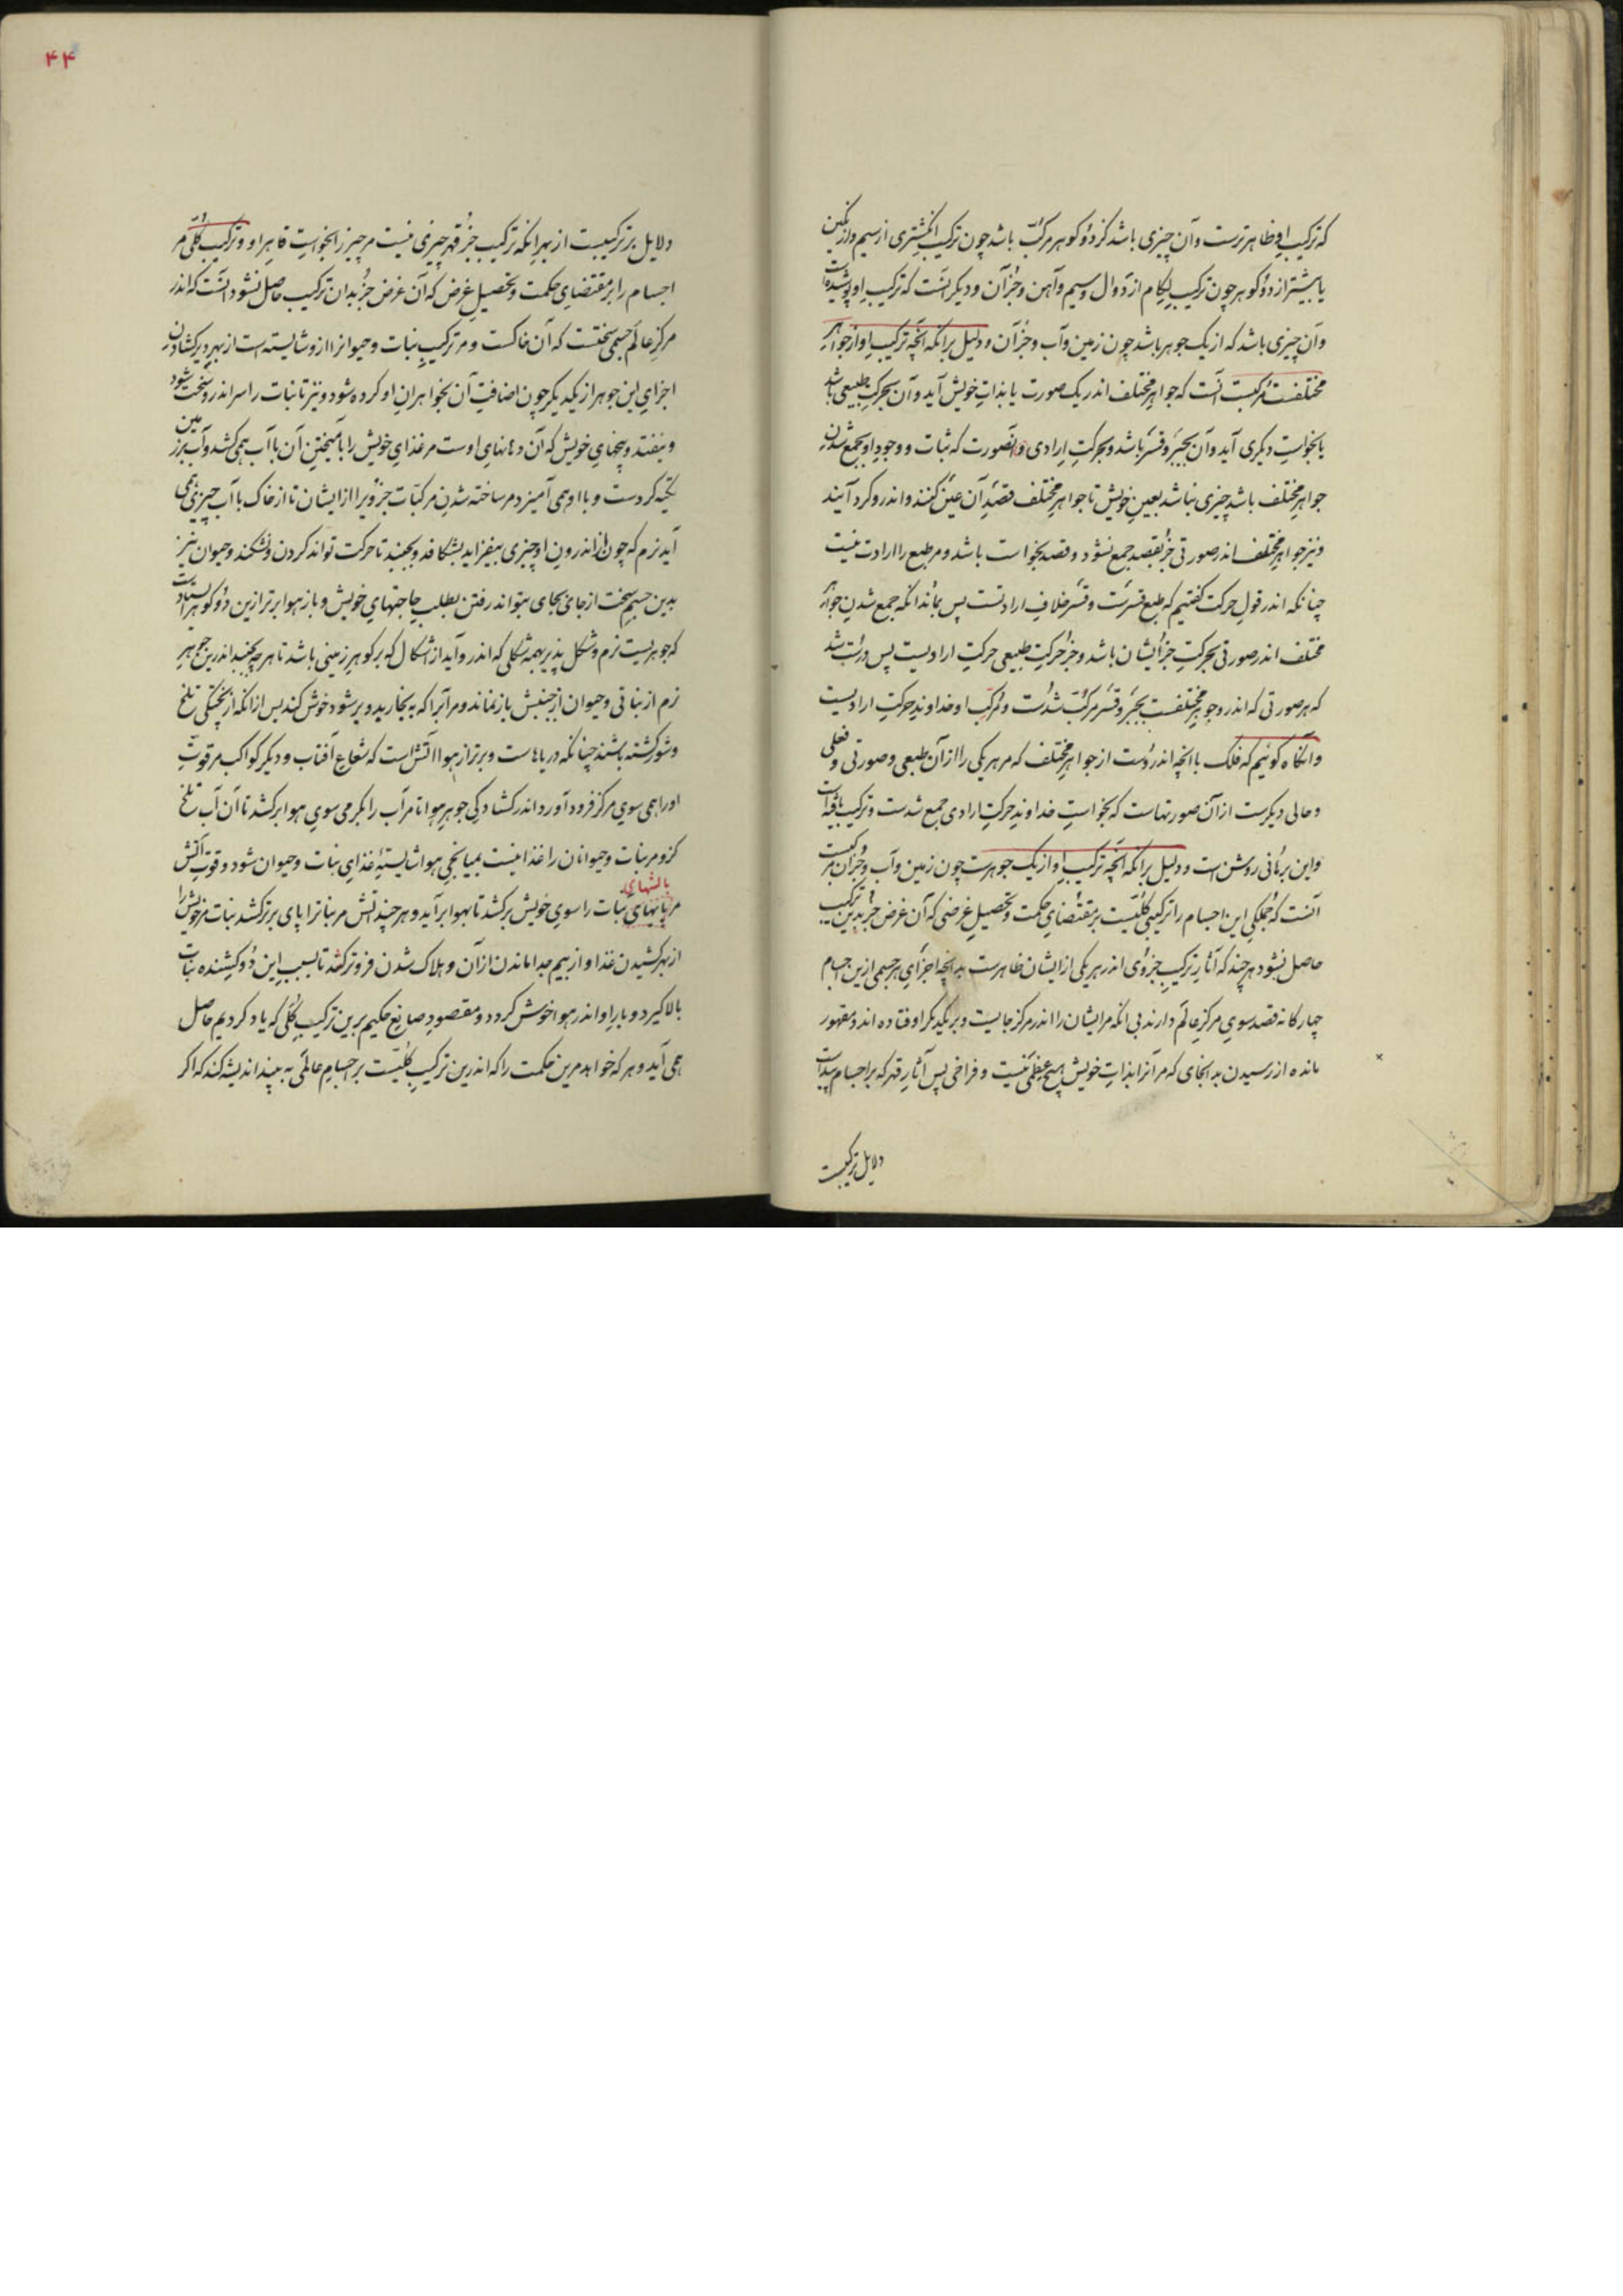 که ترکیب او ظاهرترست و آن چیزی باشد کز دو گوهر مرکب باشد چون ترکیب انگشتری از سیم و از نگین
یا بیشتر از دو گوهر چون ترکیب لگام از دوال و سیم و آهن و جز آن و دیگر آنست که ترکیب او پوشیده است
و آن چیزی باشد که از یک جوهر باشد چون زمین و آب و جز آن و دلیل برانکه آنچه ترکیب او از جواهر
مختلفست مرکبست آنست که جواهر مختلف اندر یک صورت یا بذات خویش آید و آن بحرکت طبیعی باشد
یا بخواست دیگری آید و آن بجبر و قسر باشد و بحرکت ارادی و آنصورت که ثبات و وجود او بجمع شدن
جواهر مختلف باشد چیزی نباشد بعین خویش تا جواهر مختلف قصد آن عین کنند و اندرو گرد آیند
و نیز جواهر مختلف اندر صورتی جز بقصد جمع نشود و قصد بخواست باشد و مر طبع را ارادت نیست
چنانکه اندر قول حرکت گفتیم که طبع قسرست و قسر خلاف ارادتست پس بماند انکه جمع شدن جواهر
مختلف اندر صورتی بحرکت جز ایشان باشد و جز حرکت طبیعی حرکت ارادیست پس درست شد
که هر صورتی که اندرو جوهر مختلفست بجبر و قسر مرکب شدست و مرکب او خداوند حرکت ارادیست
و آنگاه گوئیم که فلک با آنچه اندروست از جواهر مختلف که مر هر یکی را از آن طبعی و صورتی و فعلی
و حالی دیگرست از آن صورتهاست که بخواست خداوند حرکت ارادی جمع شدست و ترکیب یافته است
و این برهانی روشن است و دلیل برانکه آنچه ترکیب او از یک جوهرست چون زمین و آب و جز آن مرکبست
آنست که جملگی این اجسام را ترکیبی کلیست بر مقتضای حکمت و تحصیل غرضی که آن غرض جز بدین ترکیب
حاصل نشود هر چند که آثار ترکیب جزوی اندر هر یکی از ایشان ظاهرست بدانچه اجزای هر جسمی ازین اجسام
چهارگانه قصد سوی مرکز عالم دارند بی انکه مر ایشان را اندر مرکز جایست و بر یکدیگر اوفتاده اند و مقهور
مانده از رسیدن بدانجای که مر آنرا بذات خویش هیچ عظمی نیست و فراخی پس آثار قهر که بر اجسام پیداست
دلایل ترکیبست
۴۴
دلایل بر ترکیبست از بهر انکه ترکیب جز قهر چیزی نیست مر چیز را بخواست قاهر او و ترکیب کلی مر
اجسام را بر مقتضای حکمت و تحصیل غرض که آن غرض جز بدان ترکیب حاصل نشود آنست که اندر
مرکز عالم جسمی سختست که آن خاکست و مر ترکیب نبات و حیوانرا ازو شایسته است از بهر دیر گشادن
اجزای این جوهر از یکدیگر چون اضافت آن بخواهران او کرده شود و نیز تا نبات را سر اندرو سخت شود
و نیفتد و بیخهای خویش که آن دهانهای اوست مر غذای خویش را بآمیختن آن با آب همی کشد و آب بر زمین
تکیه کردست و با او همی آمیزد مر ساخته شدن مرکبات جزوی را از ایشان تا از خاک با آب چیزی همی
آید نرم که چون از اندرون او چیزی بیفزاید بشکافد و بجنبد تا حرکت تواند کردن و نشکند و حیوان نیز
بدین جسم سخت از جای بجای بتواند رفتن بطلب حاجتهای خویش و باز هوا برتر ازین دو گوهر ایستادست
که جوهریست نرم و شکل پذیر بهمه شکلی که اندر و آید از اشکال که بر گوهر زمینی باشد تا هر چه بجنبد اندرین جوهر
نرم از نباتی و حیوان از جنبش باز نماند و مر آبرا که به بخار بدو بر شود خوش کند پس از انکه از پختگی تلخ
و شور گشته باشند چنانکه دریاهاست و برتر از هوا آتش است که شعاع آفتاب و دیگر کواکب مر قوت
او را همی سوی مرکز فرود آورد اندر گشادگی جوهر هوا تا مر آب را بگرمی سوی هوا بر کشد تا آن آب تلخ
کزو مر نبات و حیوانان را غذا نیست بمیانجی هوا شایستهٔ غذای نبات و حیوان شود و قوت آتش
بالشهای
مر پایهای نبات را سوی خویش بر کشد تا بهوا بر آید و هر چند آتش مر نباترا پای برتر کشد نبات مر خویش را
از بهر کشیدن غذا و از بیم جدا ماندن از آن و هلاک شدن فروتر کشد تا بسبب این دو کشنده نبات
بالا گیرد و بار او اندر هوا خوش گردد و مقصود صانع حکیم برین ترکیب کلی که یاد کردیم حاصل
همی آید و هر که خواهد مرین حکمت را که اندرین ترکیب کلیست بر اجسام عالمی به بیند اندیشه کند که اگر